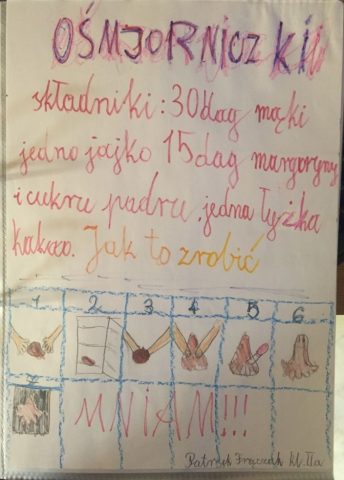 OŚMJORNICZKI
składniki: 30dag mąki
jedno jajko 15dag margaryny
i cukru pudru, jedna łyżka
kakao. Jak to zrobić
1 2 3 4 5 6
7 MNIAM!!!
Patryk kl. IIa